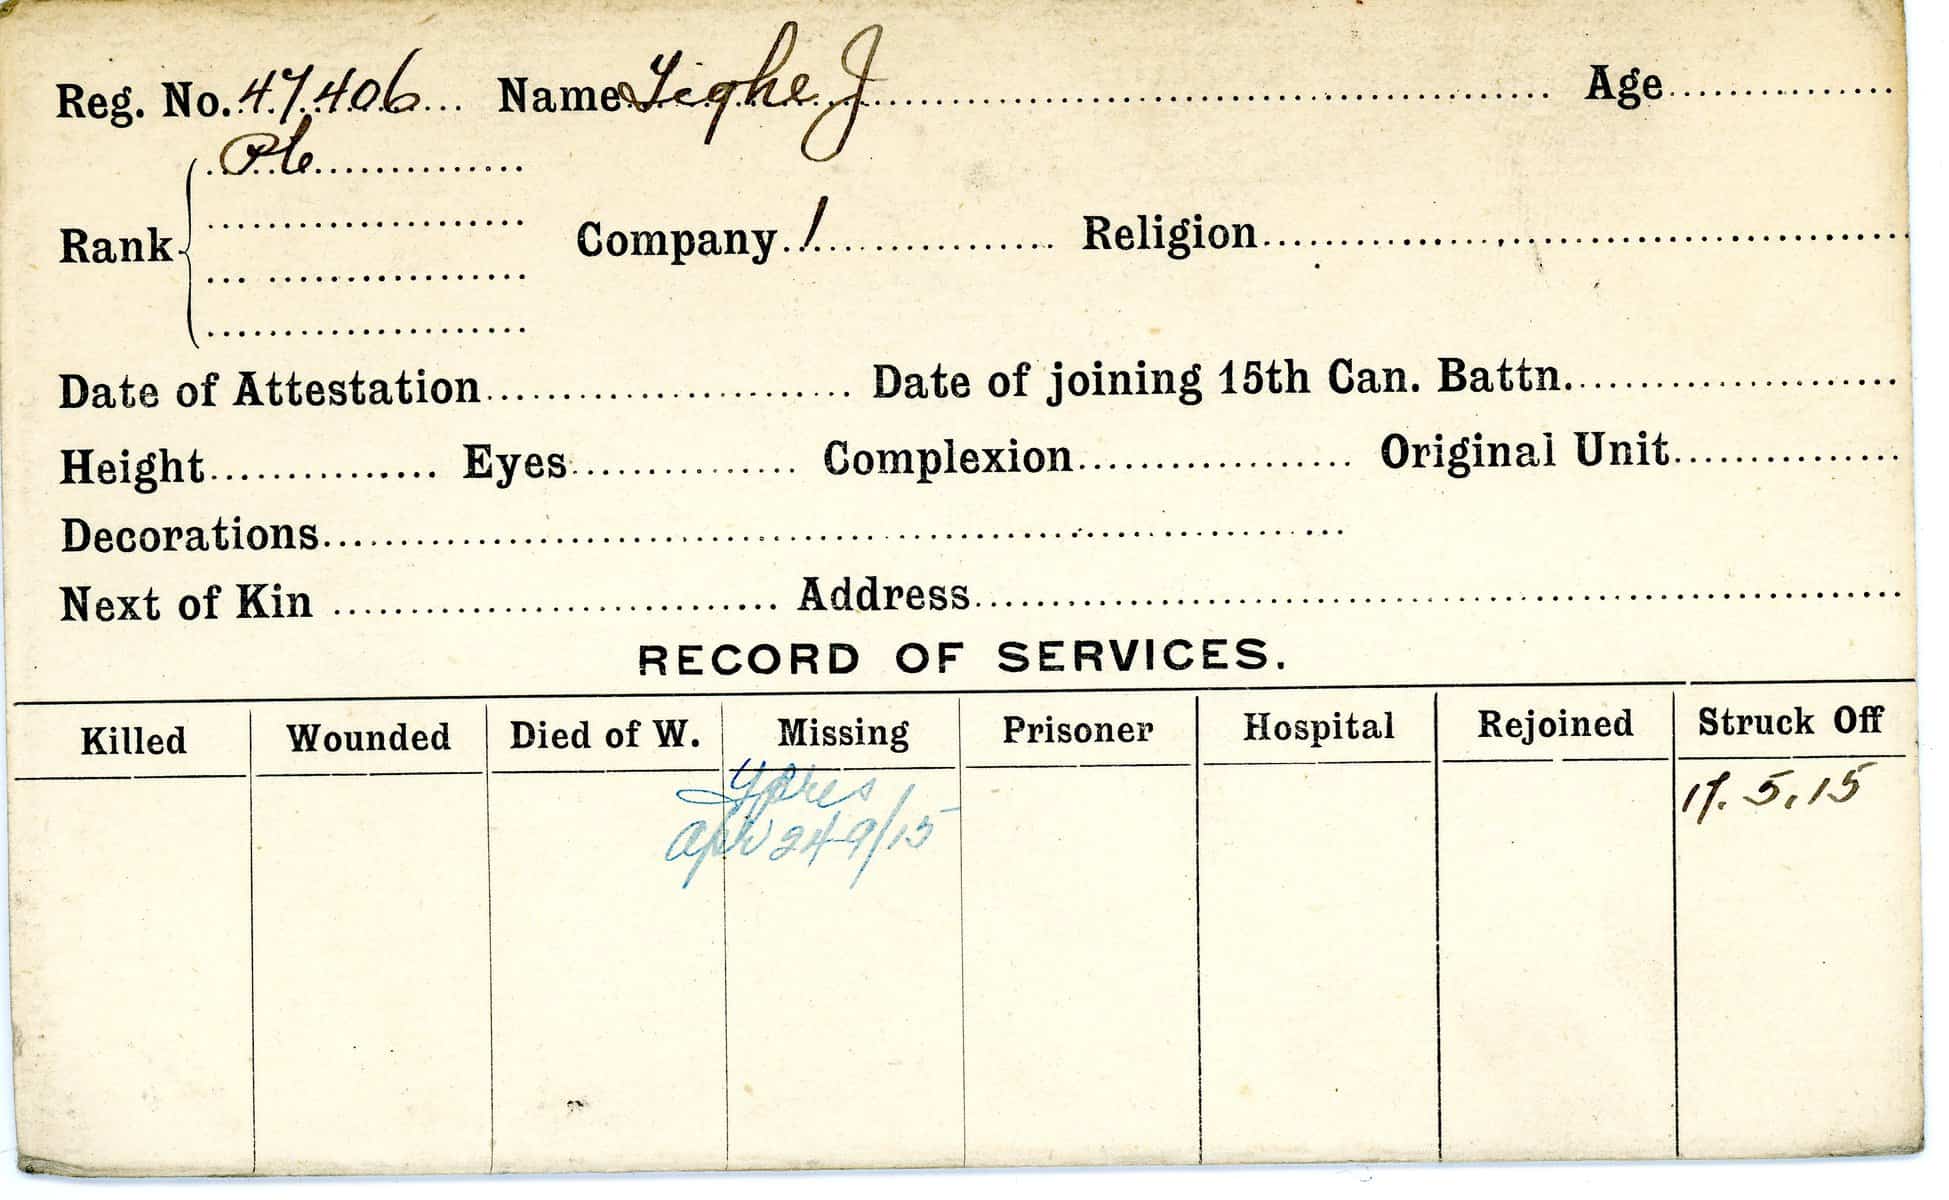 Reg. No. 47406 Name Tighe J Age
Pte
Rank Company 1 Religion
Date of Attestation Date of joining 15th Can. Battn.
Height Eyes Complexion Original Unit
Decorations
Next of Kin Address
RECORD OF SERVICES.
Killed Wounded Died of W. Missing Prisoner Hospital Rejoined Struck Off
Ypres 17.5.15
Apr 24-9/15